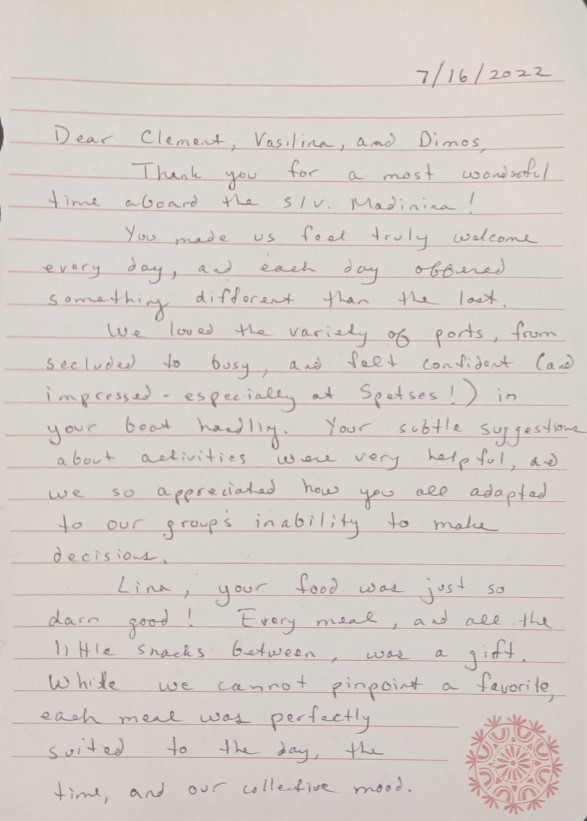 7/16/2022
Dear Clement, Vasilina, and Dimos,
Thank you for a most wonderful
time aboard the s/v. Madinina!
You made us feel truly welcome
every day, and each day offered
something different than the last.
We loved the variety of ports, from
secluded to busy, and felt confident (and
impressed - especially at Spetses!) in
your boat handlig. Your subtle suggestions
about activities were very helpful, and
we so appreciated how you all adapted
to our group's inability to make
decisions.
Lina, your food was just so
darn good! Every meal, and all the
little snacks between, was a gift.
While we cannot pinpoint a favorite,
each meal was perfectly
suited to the day, the
time, and our collective mood.